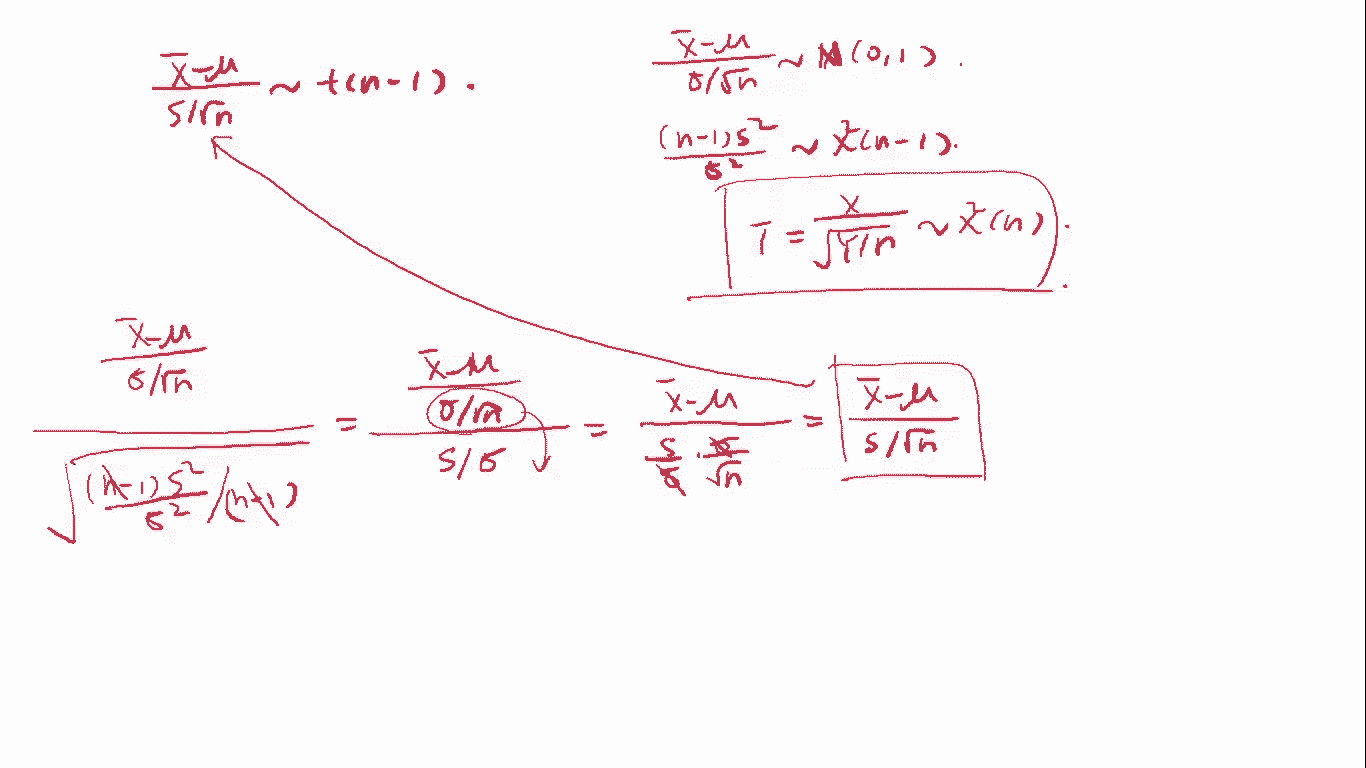 (x̄-μ)/(S/√n) ~ t(n-1).
(x̄-μ)/(σ/√n) ~ N(0,1).
(n-1)S²/σ² ~ χ²(n-1).
T = X/√(Y/n) ~ χ²(n).
((x̄-μ)/(σ/√n))/√((n-1)S²/σ²/(n-1)) = ((x̄-μ)/(σ/√n))/(S/σ) = (x̄-μ)/(S/σ·σ/√n) = (x̄-μ)/(S/√n)